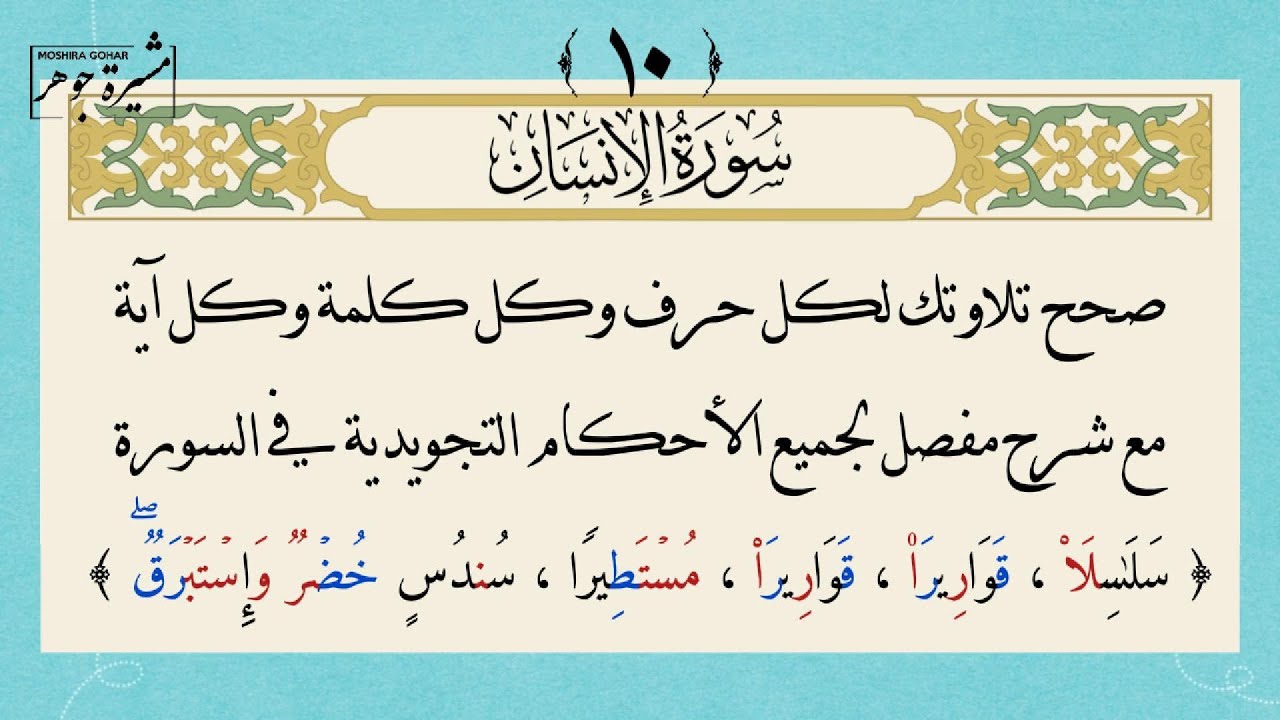 MOSHIRA GOHAR
مشيرة جوهر
﴿ ١٠ ﴾
سُورَةُ الإِنسَانِ
صحح تلاوتك لكل حرف وكل كلمة وكل آية
مع شرح مفصل لجميع الأحكام التجويدية في السورة
﴿ سَلَـٰسِلَا۟ ، قَوَارِيرَا۠ ، قَوَارِيرَا۟ ، مُسۡتَطِيرًا ، سُندُسٍ خُضۡرٌ وَإِسۡتَبۡرَقٌۖ ﴾